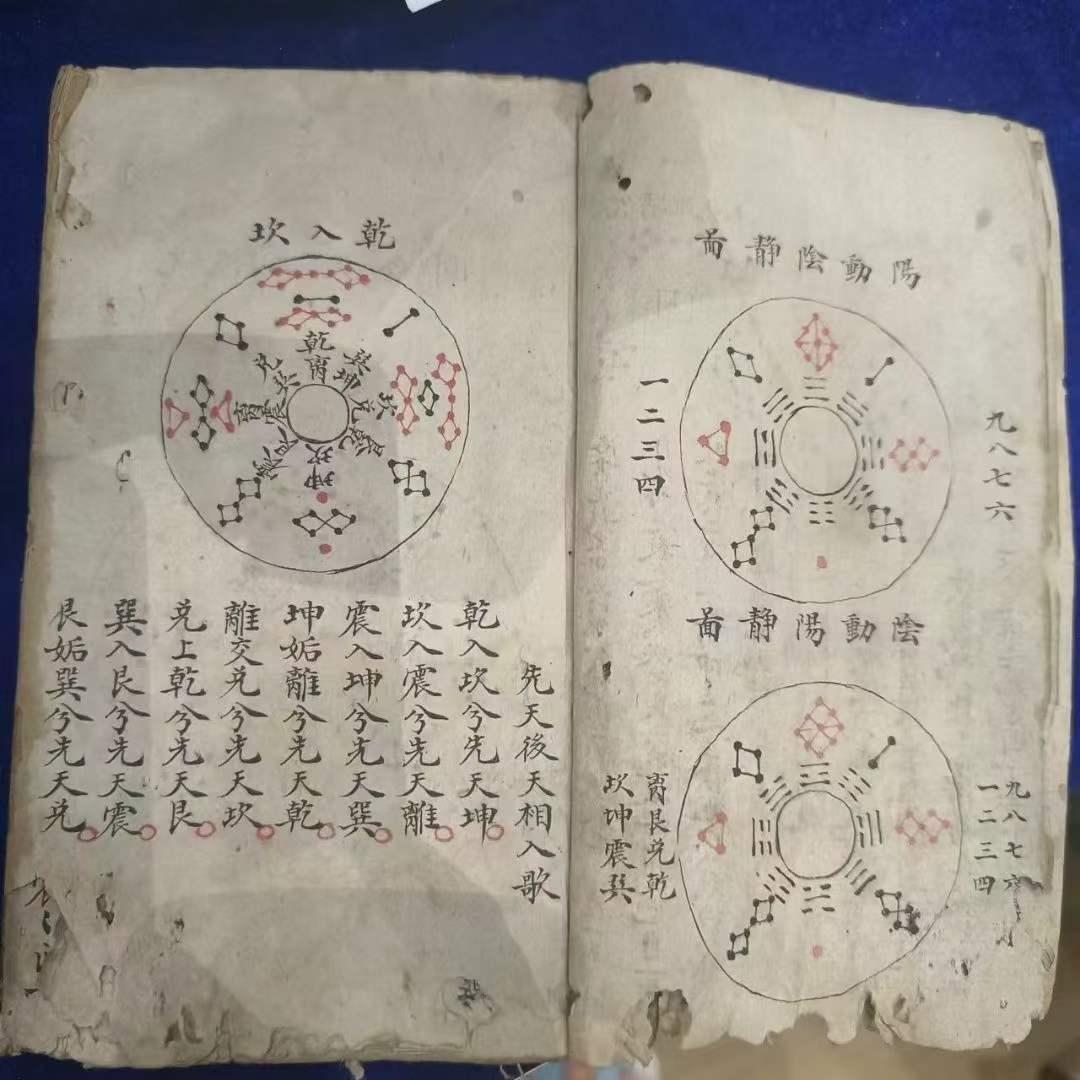 陽動陰静圖
九八七六
一二三四
陰動陽静圖
九八七六
一二三四
离艮兑乾
坎坤震巽
乾入坎
乾
离
巽
坤
坎
兑
艮
乾
坤
坎
震
艮
离
震
兑
巽
先天後天相入歌
乾入坎兮先天坤
坎入震兮先天離
震入坤兮先天巽
坤姤離兮先天乾
離交兑兮先天坎
兑上乾兮先天艮
巽入艮兮先天震
艮姤巽兮先天兑